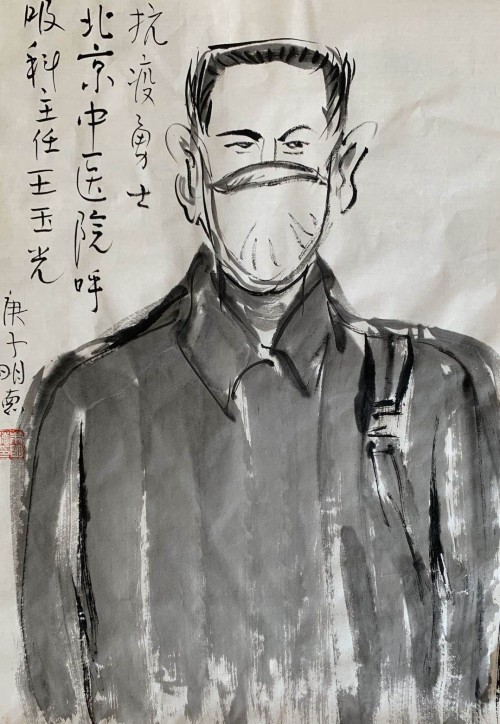 抗疫勇士
北京中医院呼
吸科主任王玉光
庚子明